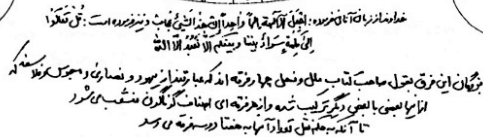 خداوند از زبان آنان فرموده: اجعل الآلهة الهاً واحداً ان هذا لشیئ عجاب و نیز فرموده است: قل تعالوا
الی کلمة سواء بیننا و بینکم الا نعبد الا الله
بزرگان این فرق بقول صاحب کتاب ملل و نحل چهار فرقه اند که عبارتند از یهود و نصاری و مجوس و فلاسفه که
از آنها بعضی با بعضی دیگر ترکیب شده و از هر فرقه ای اصناف گوناگون منشعب می شود
تا آنکه به هفتاد و سه فرقه می رسد